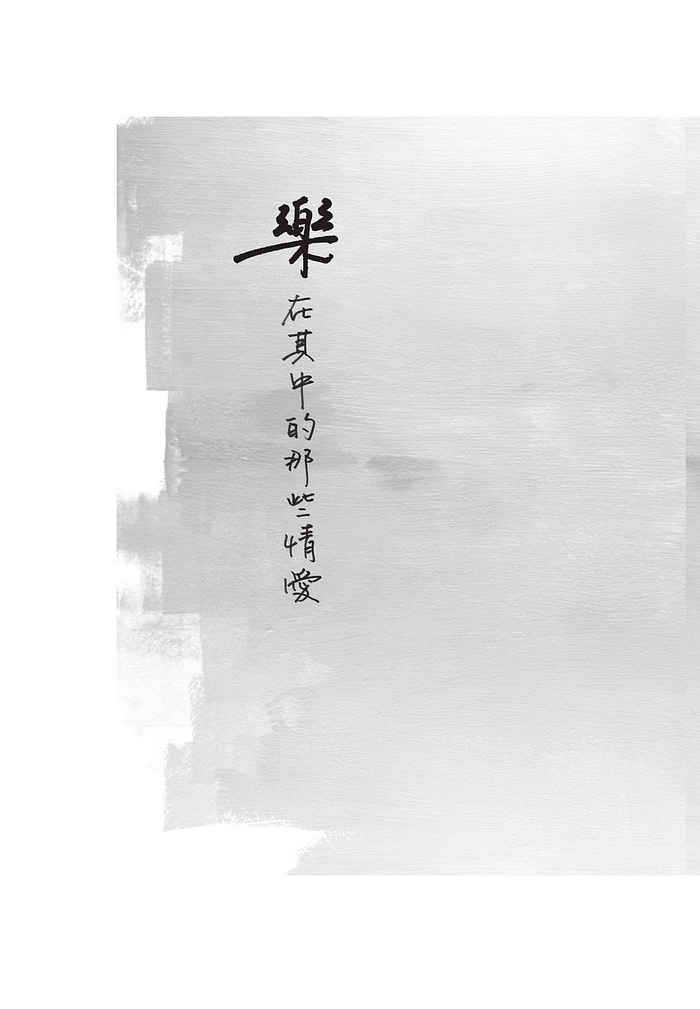 樂在其中的那些情愛